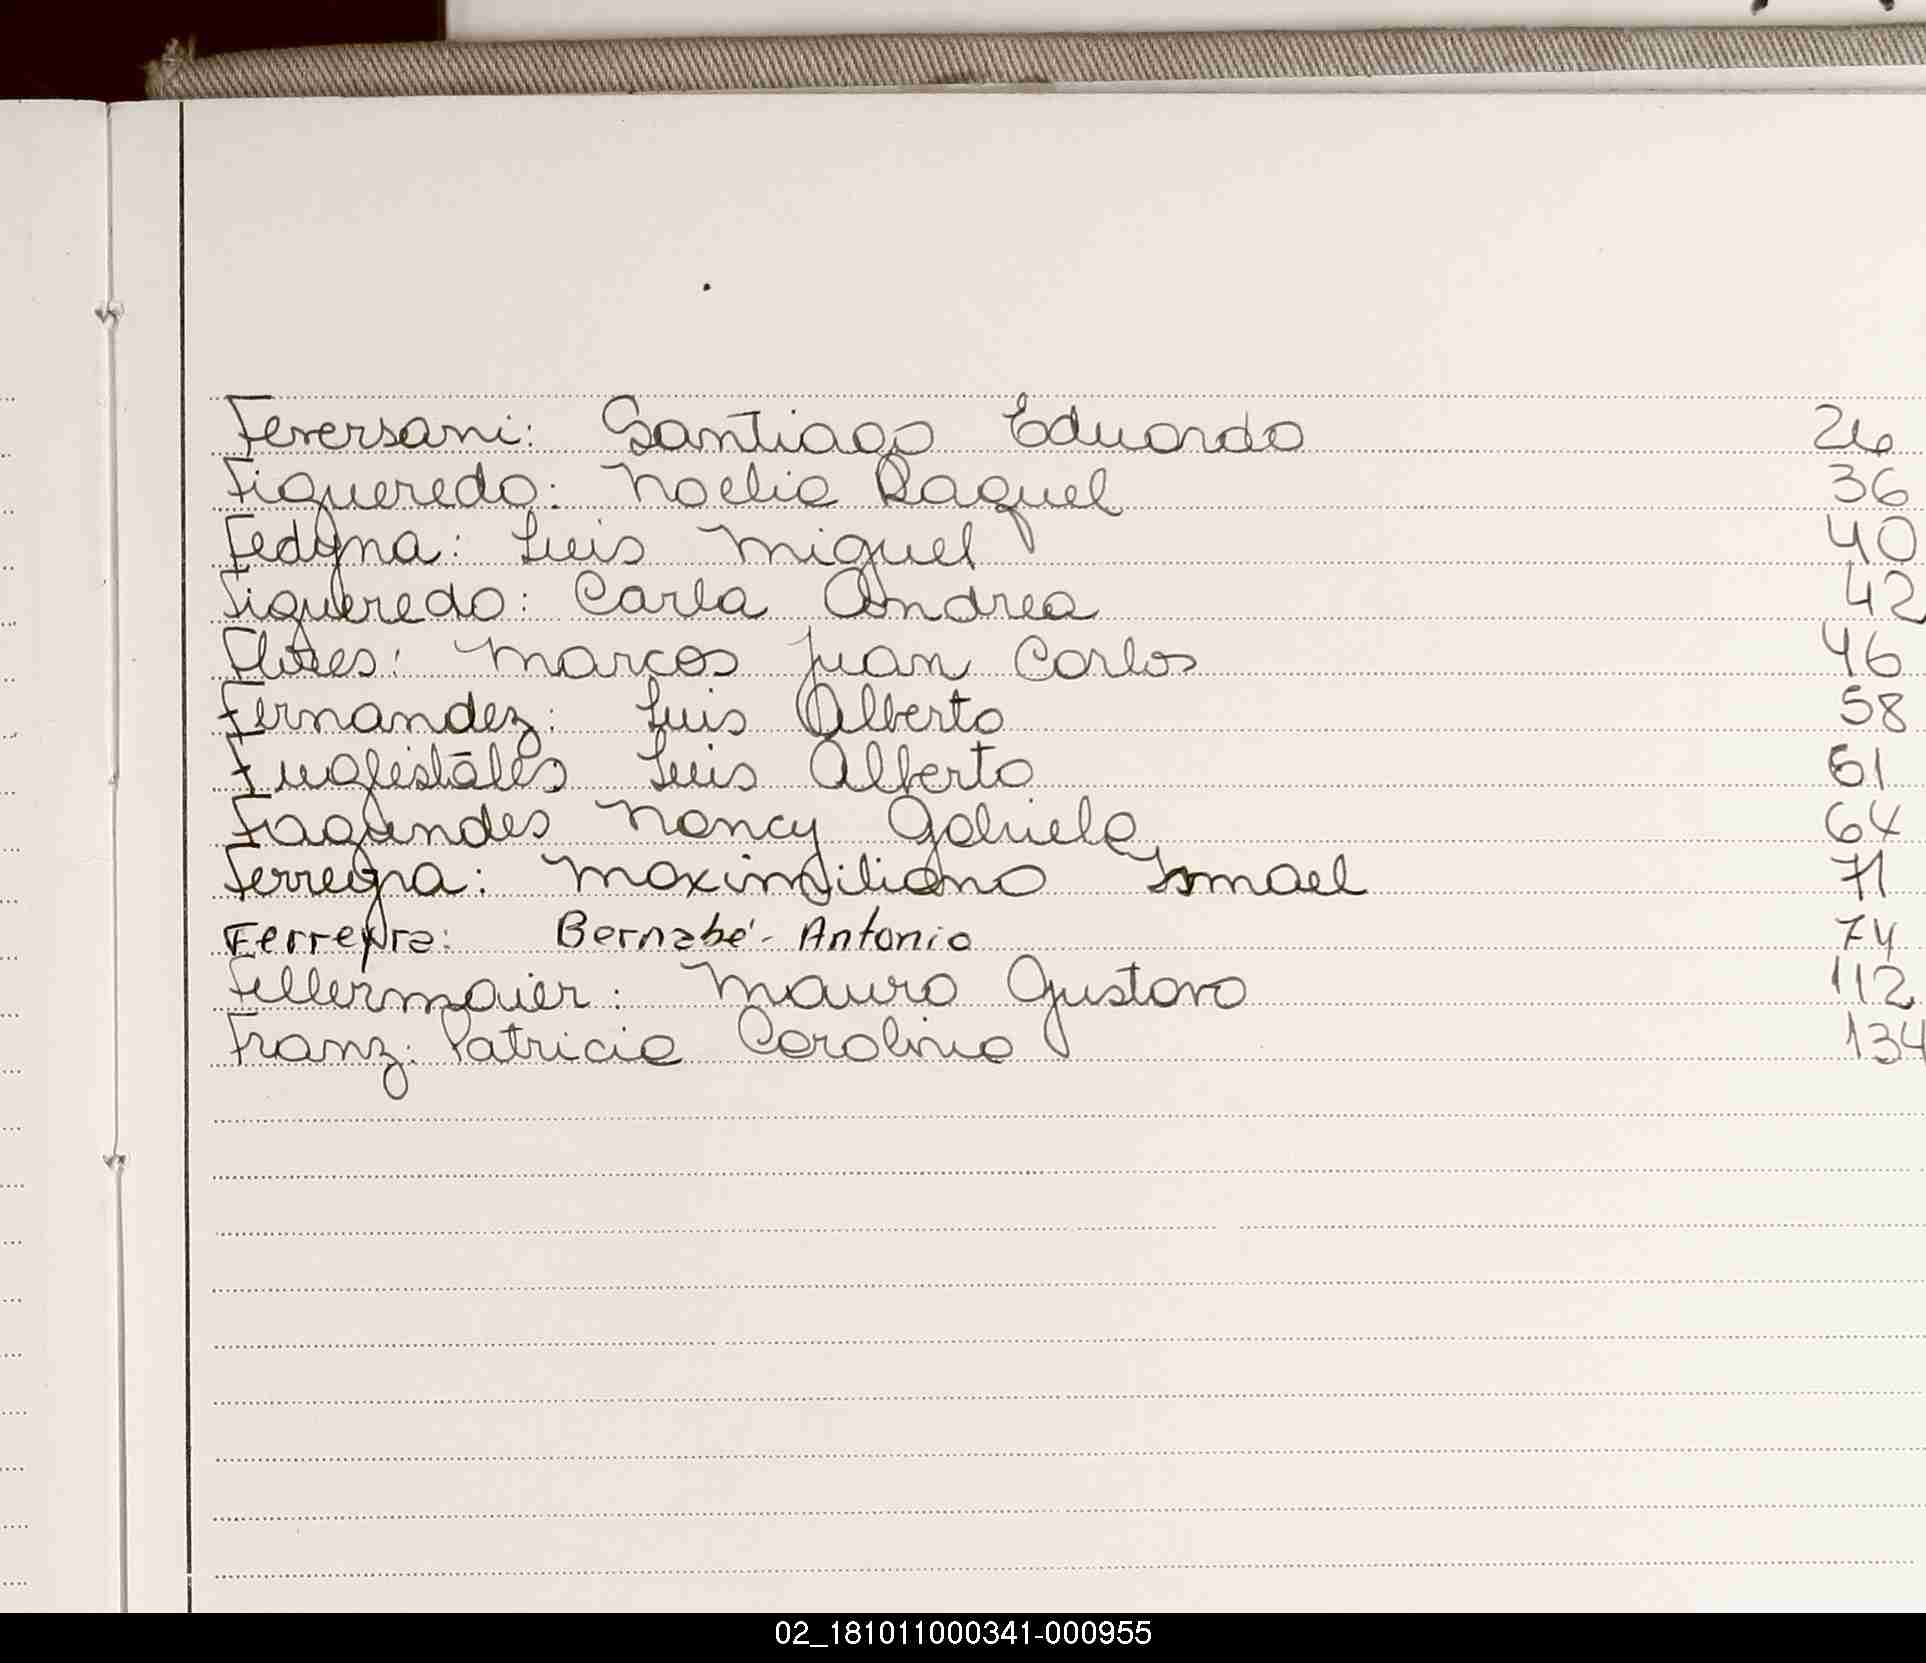 Feversani: Santiago Eduardo 26
Figueredo: Noelia Raquel 36
Fedyna: Luis Miguel 40
Figueredo: Carla Andrea 42
Flores: Marcos Juan Carlos 46
Fernandez: Luis Alberto 58
Luis Alberto 61
Fagundes Nancy Gabriela 64
Ferreyra: Maximiliano Ismael 71
Ferreyra: Bernabé - Antonio 74
Fellermaier: Mauro Gustavo 112
Franz: Patricia Carolina 134
02_181011000341-000955